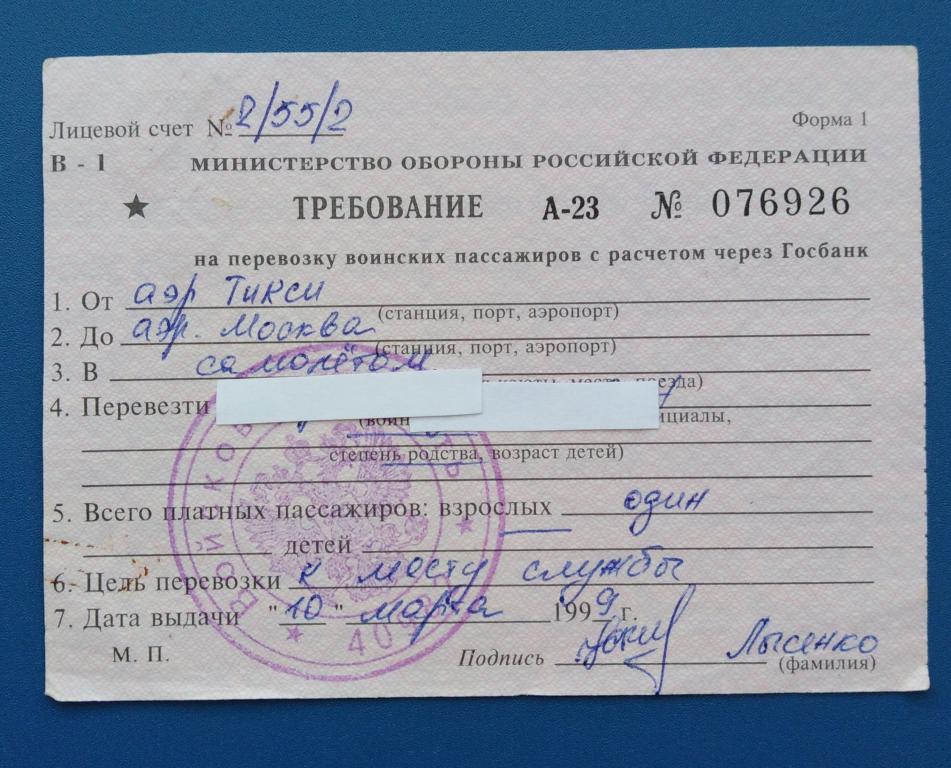 Лицевой счет № 2/55/2
Форма 1
В - 1 МИНИСТЕРСТВО ОБОРОНЫ РОССИЙСКОЙ ФЕДЕРАЦИИ
ТРЕБОВАНИЕ А-23 № 076926
на перевозку воинских пассажиров с расчетом через Госбанк
1. От аэр Тикси
(станция, порт, аэропорт)
2. До аэр. Москва
(станция, порт, аэропорт)
3. В самолётом
места, поезда)
4. Перевезти
степень родства, возраст детей)
5. Всего платных пассажиров: взрослых один
детей
6. Цель перевозки к месту службы
7. Дата выдачи "10" марта 1999 г.
М. П. Подпись Лысенко
(фамилия)